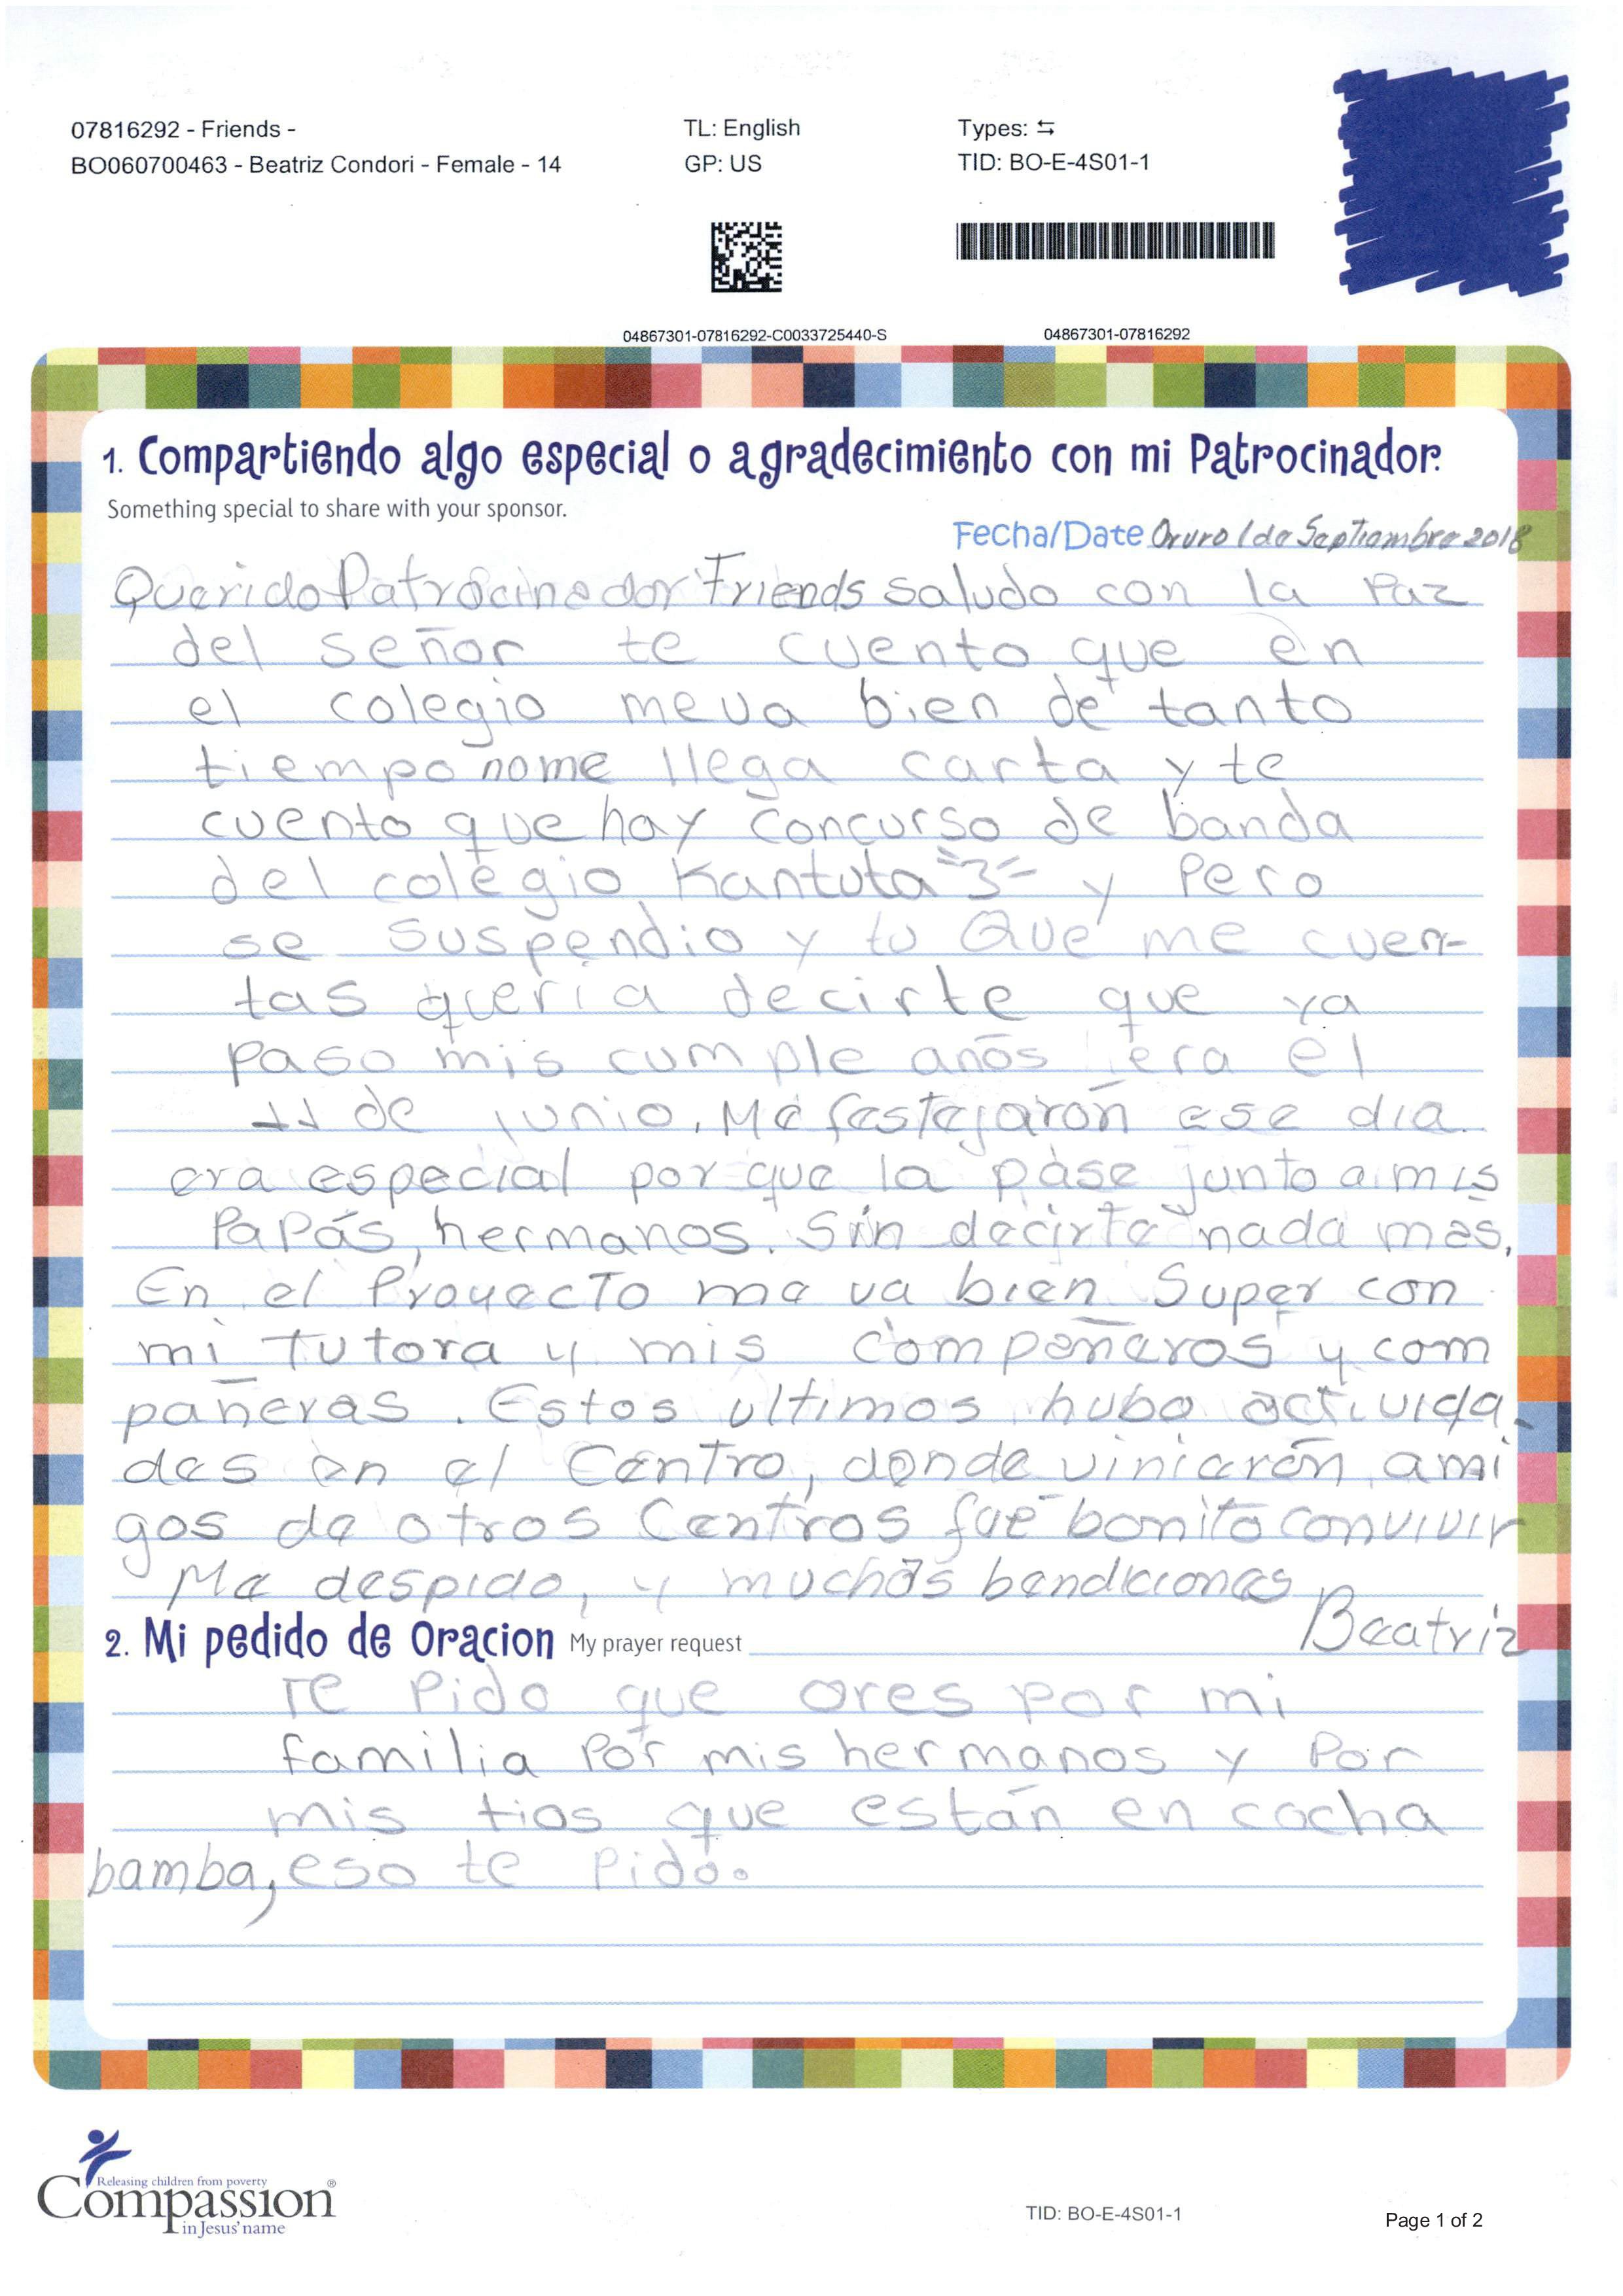 07816292 - Friends -
BO060700463 - Beatriz Condori - Female - 14
TL: English
GP: US
Types: ⇆
TID: BO-E-4S01-1
04867301-07816292-C0033725440-S
04867301-07816292
1. Compartiendo algo especial o agradecimiento con mi Patrocinador.
Something special to share with your sponsor.
Fecha/Date Oruro 1 de Septiembre 2018
Querido Patrocinador Friends saludo con la Paz
del señor te cuento que en
el colegio meva bien de tanto
tiempo nome llega carta y te
cuento que hay concurso de banda
del colegio Kantuta "3" y Pero
se suspendio y tu Que me cuen-
tas queria decirte que ya
paso mis cumple años era el
11 de junio, Me festejarón ese dia.
era especial por que la pase junto a mis
Papás, hermanos. Sin decirte nada mas,
En el Proyecto me va bien Super con
mi Tutora y mis compañeros y com
pañeras. Estos ultimos hubo activida
des en el Centro, donde vinierón ami
gos de otros Centros fue bonito convivir
Me despido, y muchas bendiciones
Beatriz
2. Mi pedido de Oracion My prayer request
Te Pido que ores por mi
familia Por mis hermanos y Por
mis tios que están en cocha
bamba, eso te Pido.
Releasing children from poverty
Compassion®
in Jesus' name
TID: BO-E-4S01-1
Page 1 of 2